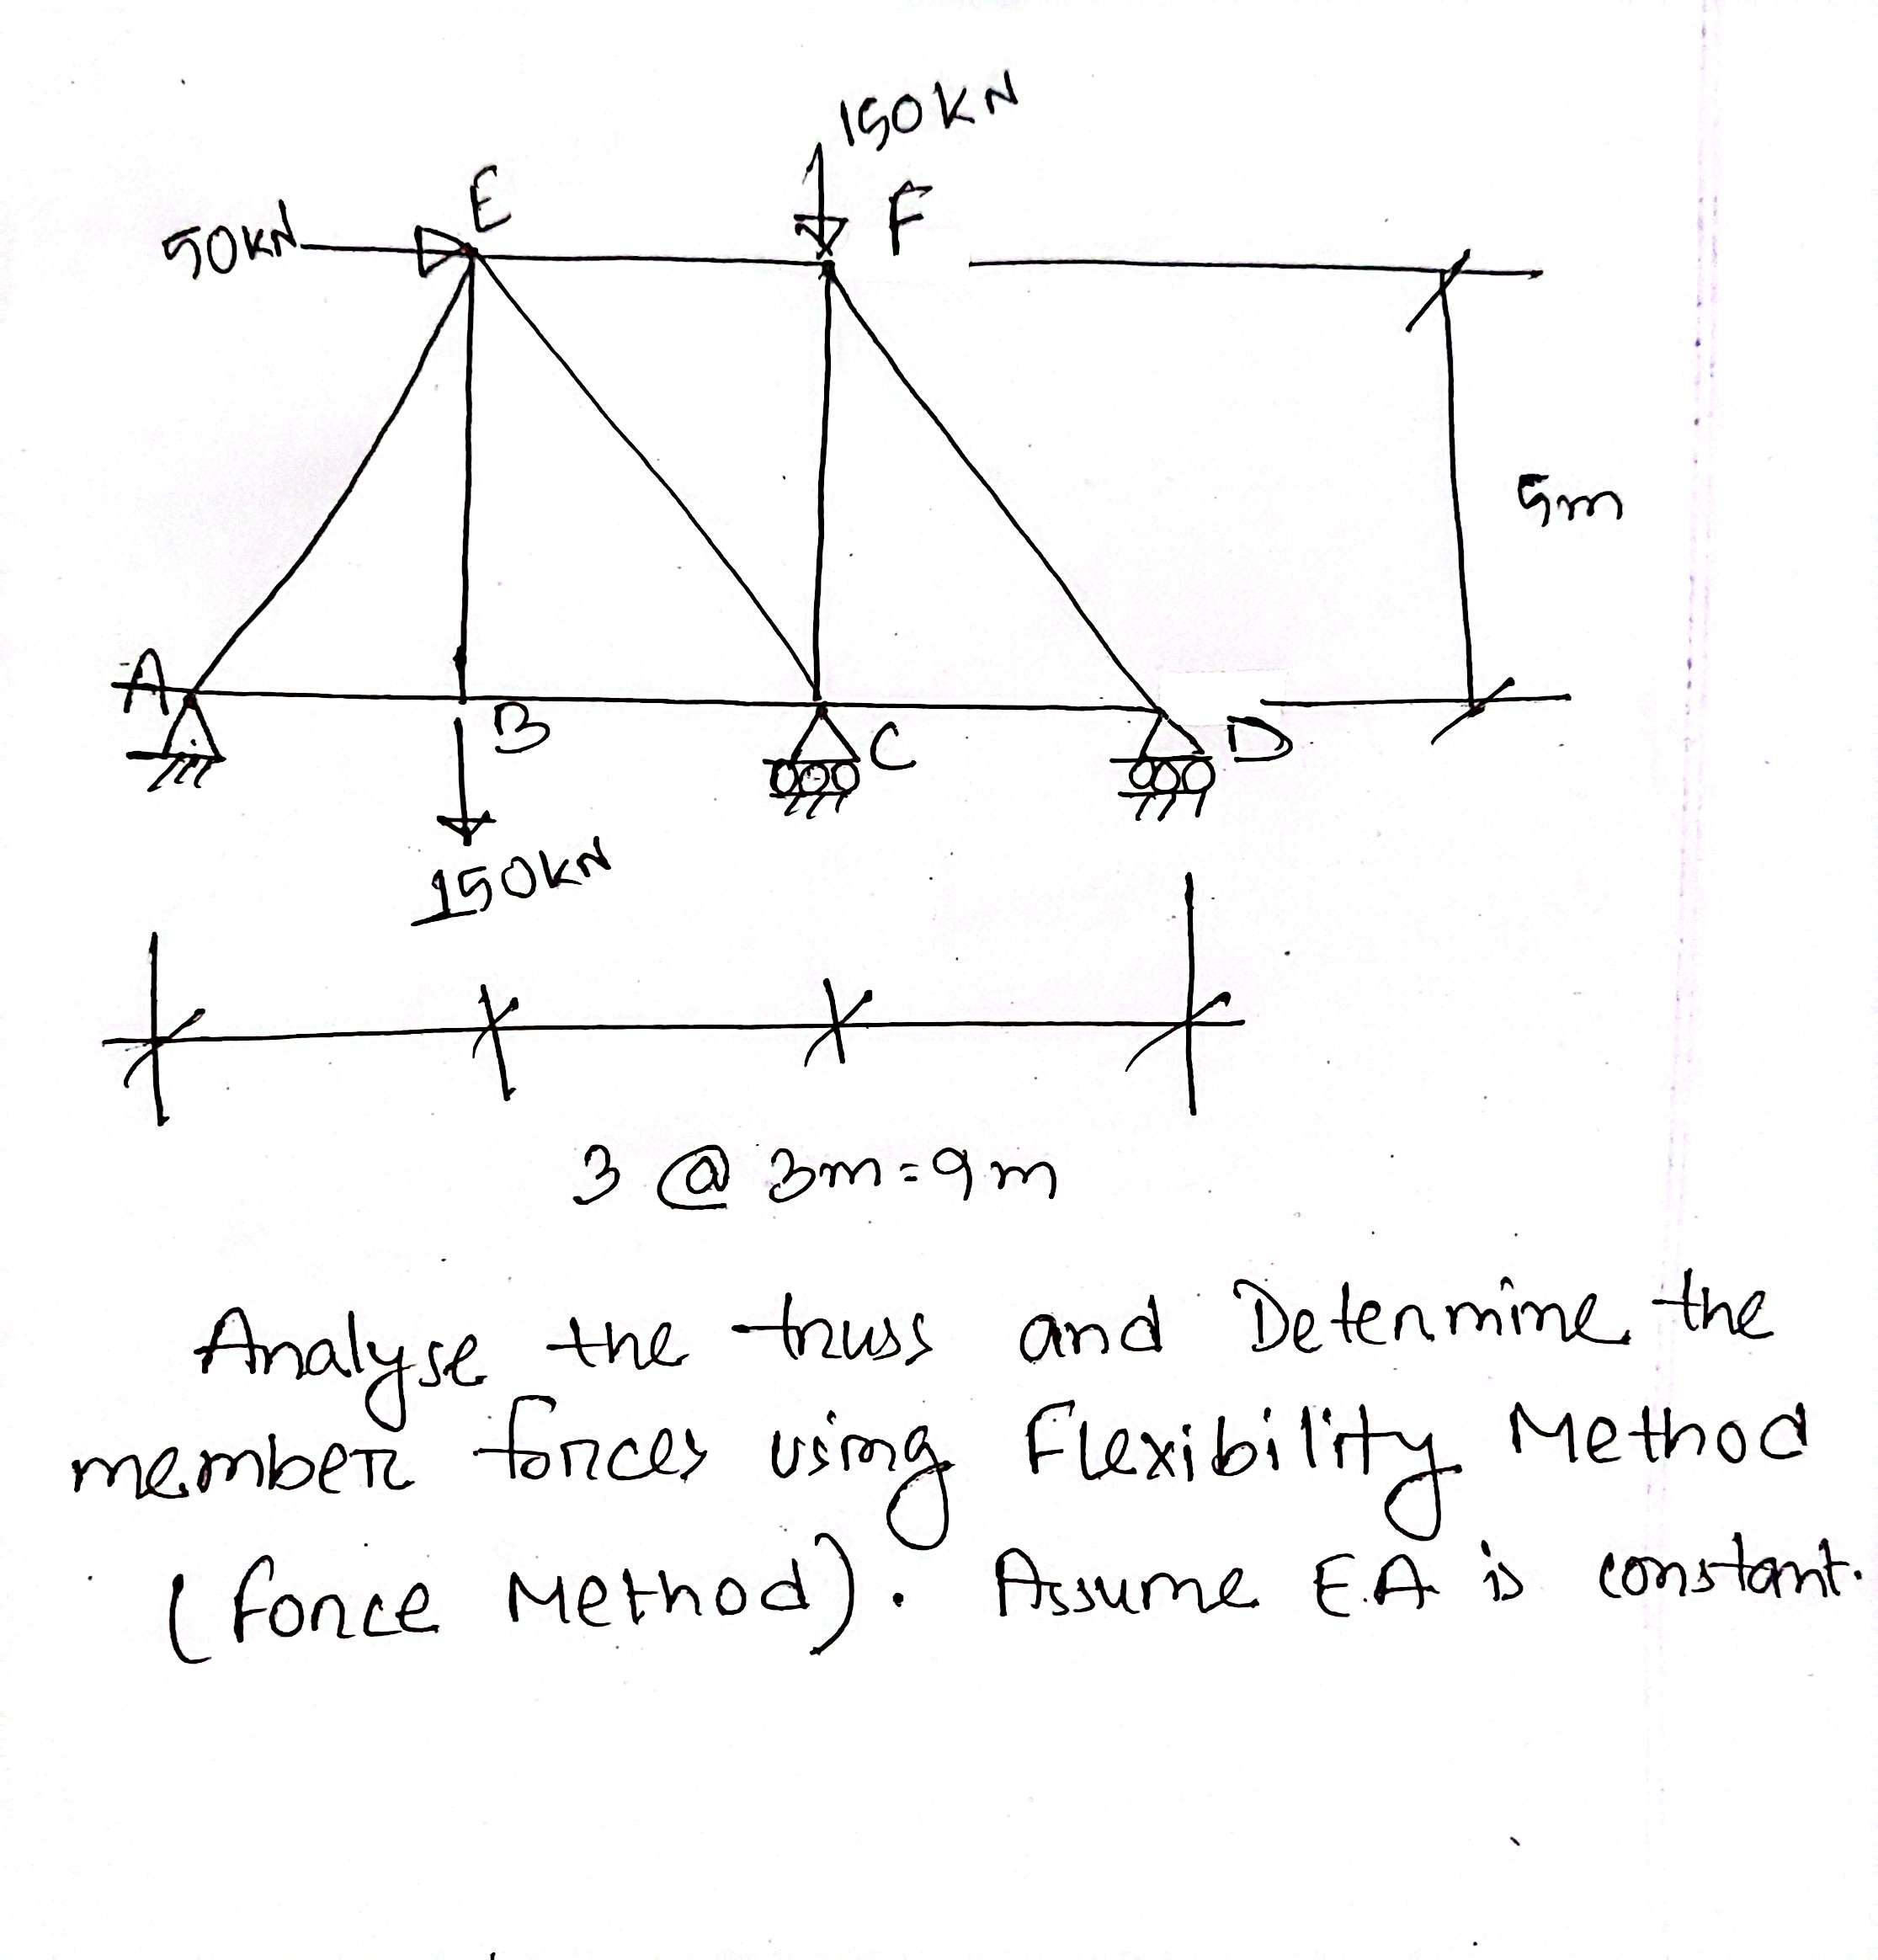 150KN
E
F
50KN
5m
A
B
C
D
150KN
3 @ 3m=9m
Analyse the truss and Determine the
member forces using Flexibility Method
(Force Method). Assume E.A is constant.